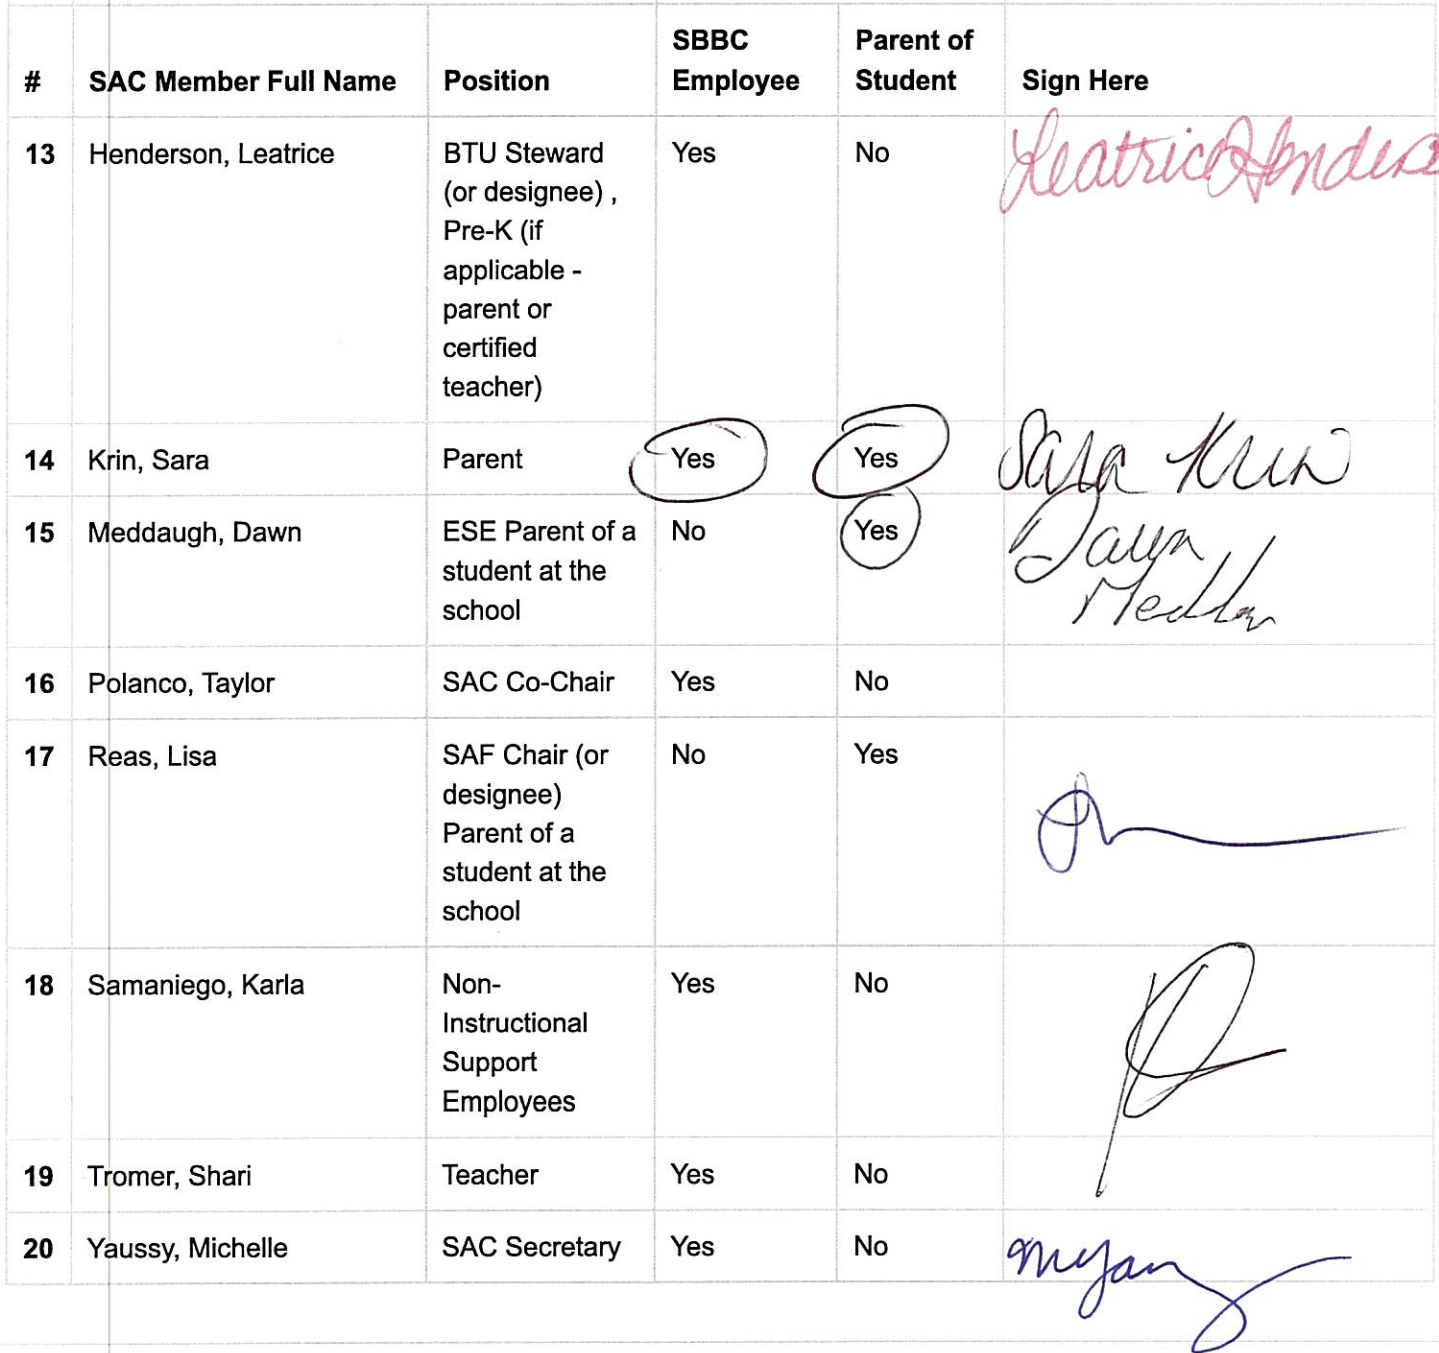 # SAC Member Full Name Position SBBC Employee Parent of Student Sign Here
13 Henderson, Leatrice BTU Steward Yes No Leatrice Henders
(or designee) ,
Pre-K (if
applicable -
parent or
certified
teacher)
14 Krin, Sara Parent Yes Yes Sara Krin
15 Meddaugh, Dawn ESE Parent of a No Yes Dawn
student at the
school
16 Polanco, Taylor SAC Co-Chair Yes No
17 Reas, Lisa SAF Chair (or No Yes
designee)
Parent of a
student at the
school
18 Samaniego, Karla Non- Yes No
Instructional
Support
Employees
19 Tromer, Shari Teacher Yes No
20 Yaussy, Michelle SAC Secretary Yes No